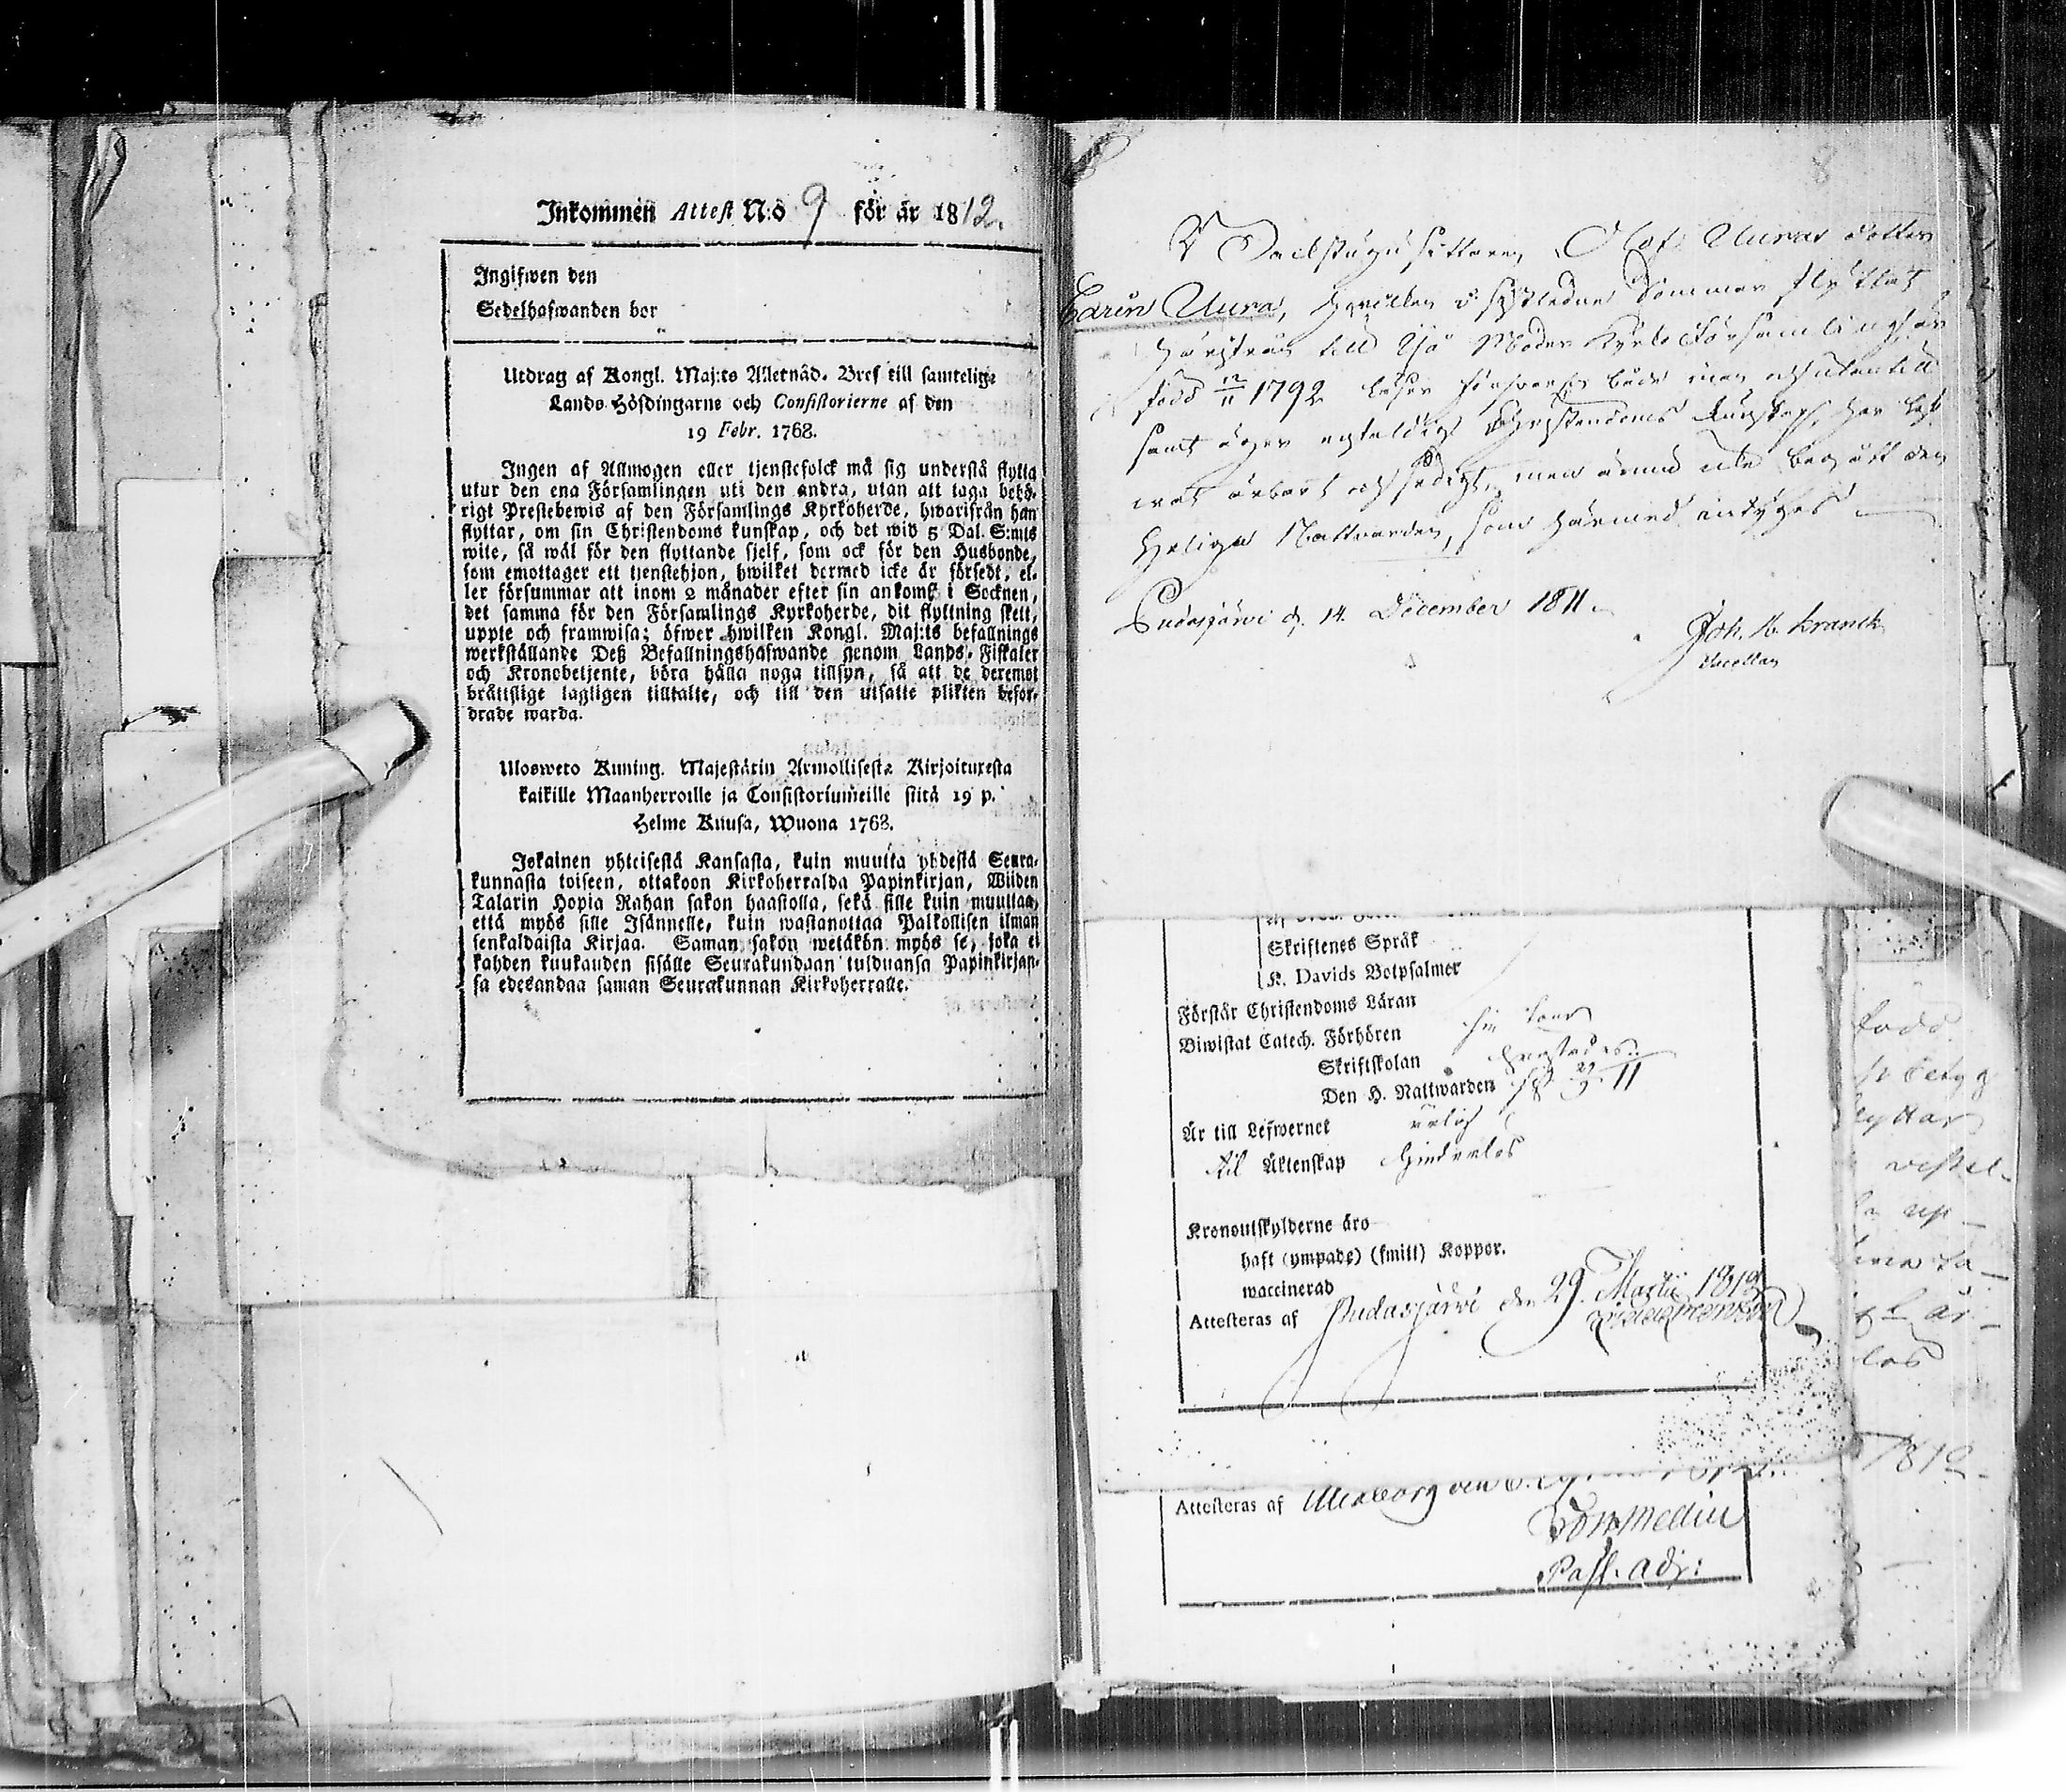 Inkommen Attest N:o 9 för år 1812.
Ingifwen den
Sedelhafwanden bor
Utdrag af Kongl. Maj:ts Allernåd. Bref till samtelige
Lands-Höfdingarne och Consistorierne af den
19 Febr. 1768.
Ingen af Allmogen eller tjenstefolck må sig understå flytta
utur den ena Församlingen uti den andra, utan att taga behö-
rigt Prestebewis af den Församlings Kyrkoherde, hwarifrån han
flyttar, om sin Christendoms kunskap, och det wid 5 Dal. S:mts
wite, så wäl för den flyttande sjelf, som ock för den Husbonde,
som emottager ett tjenstehjon, hwilket dermed icke är försedt, el-
ler försummar att inom 2 månader efter sin ankomst i Socknen,
det samma för den Församlings Kyrkoherde, dit flyttning skett,
uppte och framwisa; öfwer hwilken Kongl. Maj:ts befallnings
werkställande Deß Befallningshafwande genom Lands-Fiskaler
och Kronobetjente, böra hålla noga tillsyn, så att de deremot
bråttslige lagligen tilltalte, och till den utsatte plikten befor-
drade warda.
Ulosweto Kuning. Majestätin Armollisesta Kirjoituxesta
kaikille Maanherroille ja Consistoriumeille siitä 19 p.
Helme Kuusa, Wuona 1768.
Jokainen yhteisestä Kansasta, kuin muutta yhdestä Seura-
kunnasta toiseen, ottakoon Kirkoherralda Papinkirjan, Wiiden
Talarin Hopia Rahan sakon haastolla, sekä sille kuin muuttaa,
että myös sille Isännelle, kuin wastanottaa Palkollisen ilman
senkaldaista Kirjaa. Saman sakon wetäkön myös se, joka ei
kahden kuukauden sisälle Seurakundaan tulduansa Papinkirjan-
sa edesandaa saman Seurakunnan Kirkoherralle.
8
Backstugusittaren Olof Auras dotter
Carin Aura, hvilken sistledne Sommar flyttat
härifrån till Ijo Moder Kyrko Församling är
född 12/11 1792 läser försvarl. både innan och utantill
samt äger enfaldig Christendoms kunskap, har lef-
wat ärbart och sedigt, men ännu icke begått den
Heliga Nattvarden, som härmed intygas
Pudasjärvi d. 14. December 1811.
Joh. Kranck
Sacellan
Skriftenes Språk
K. Davids Botpsalmer
Förstår Christendoms Läran
Biwistat Catech. Förhören
Skriftskolan
Den H. Nattwarden 11
Är till Lefwernet ärlig
til Äktenskap hinderlös
Kronoutskylderne äro
haft (ympade) (smitt) Koppor.
waccinerad
Attesteras af Pudasjärvi den 29. Martii 1812
Attesteras af Uleåborg den
Mellin
Past. adj:
född
betyg
flyttar
vistel-
up-
är
lös
1812